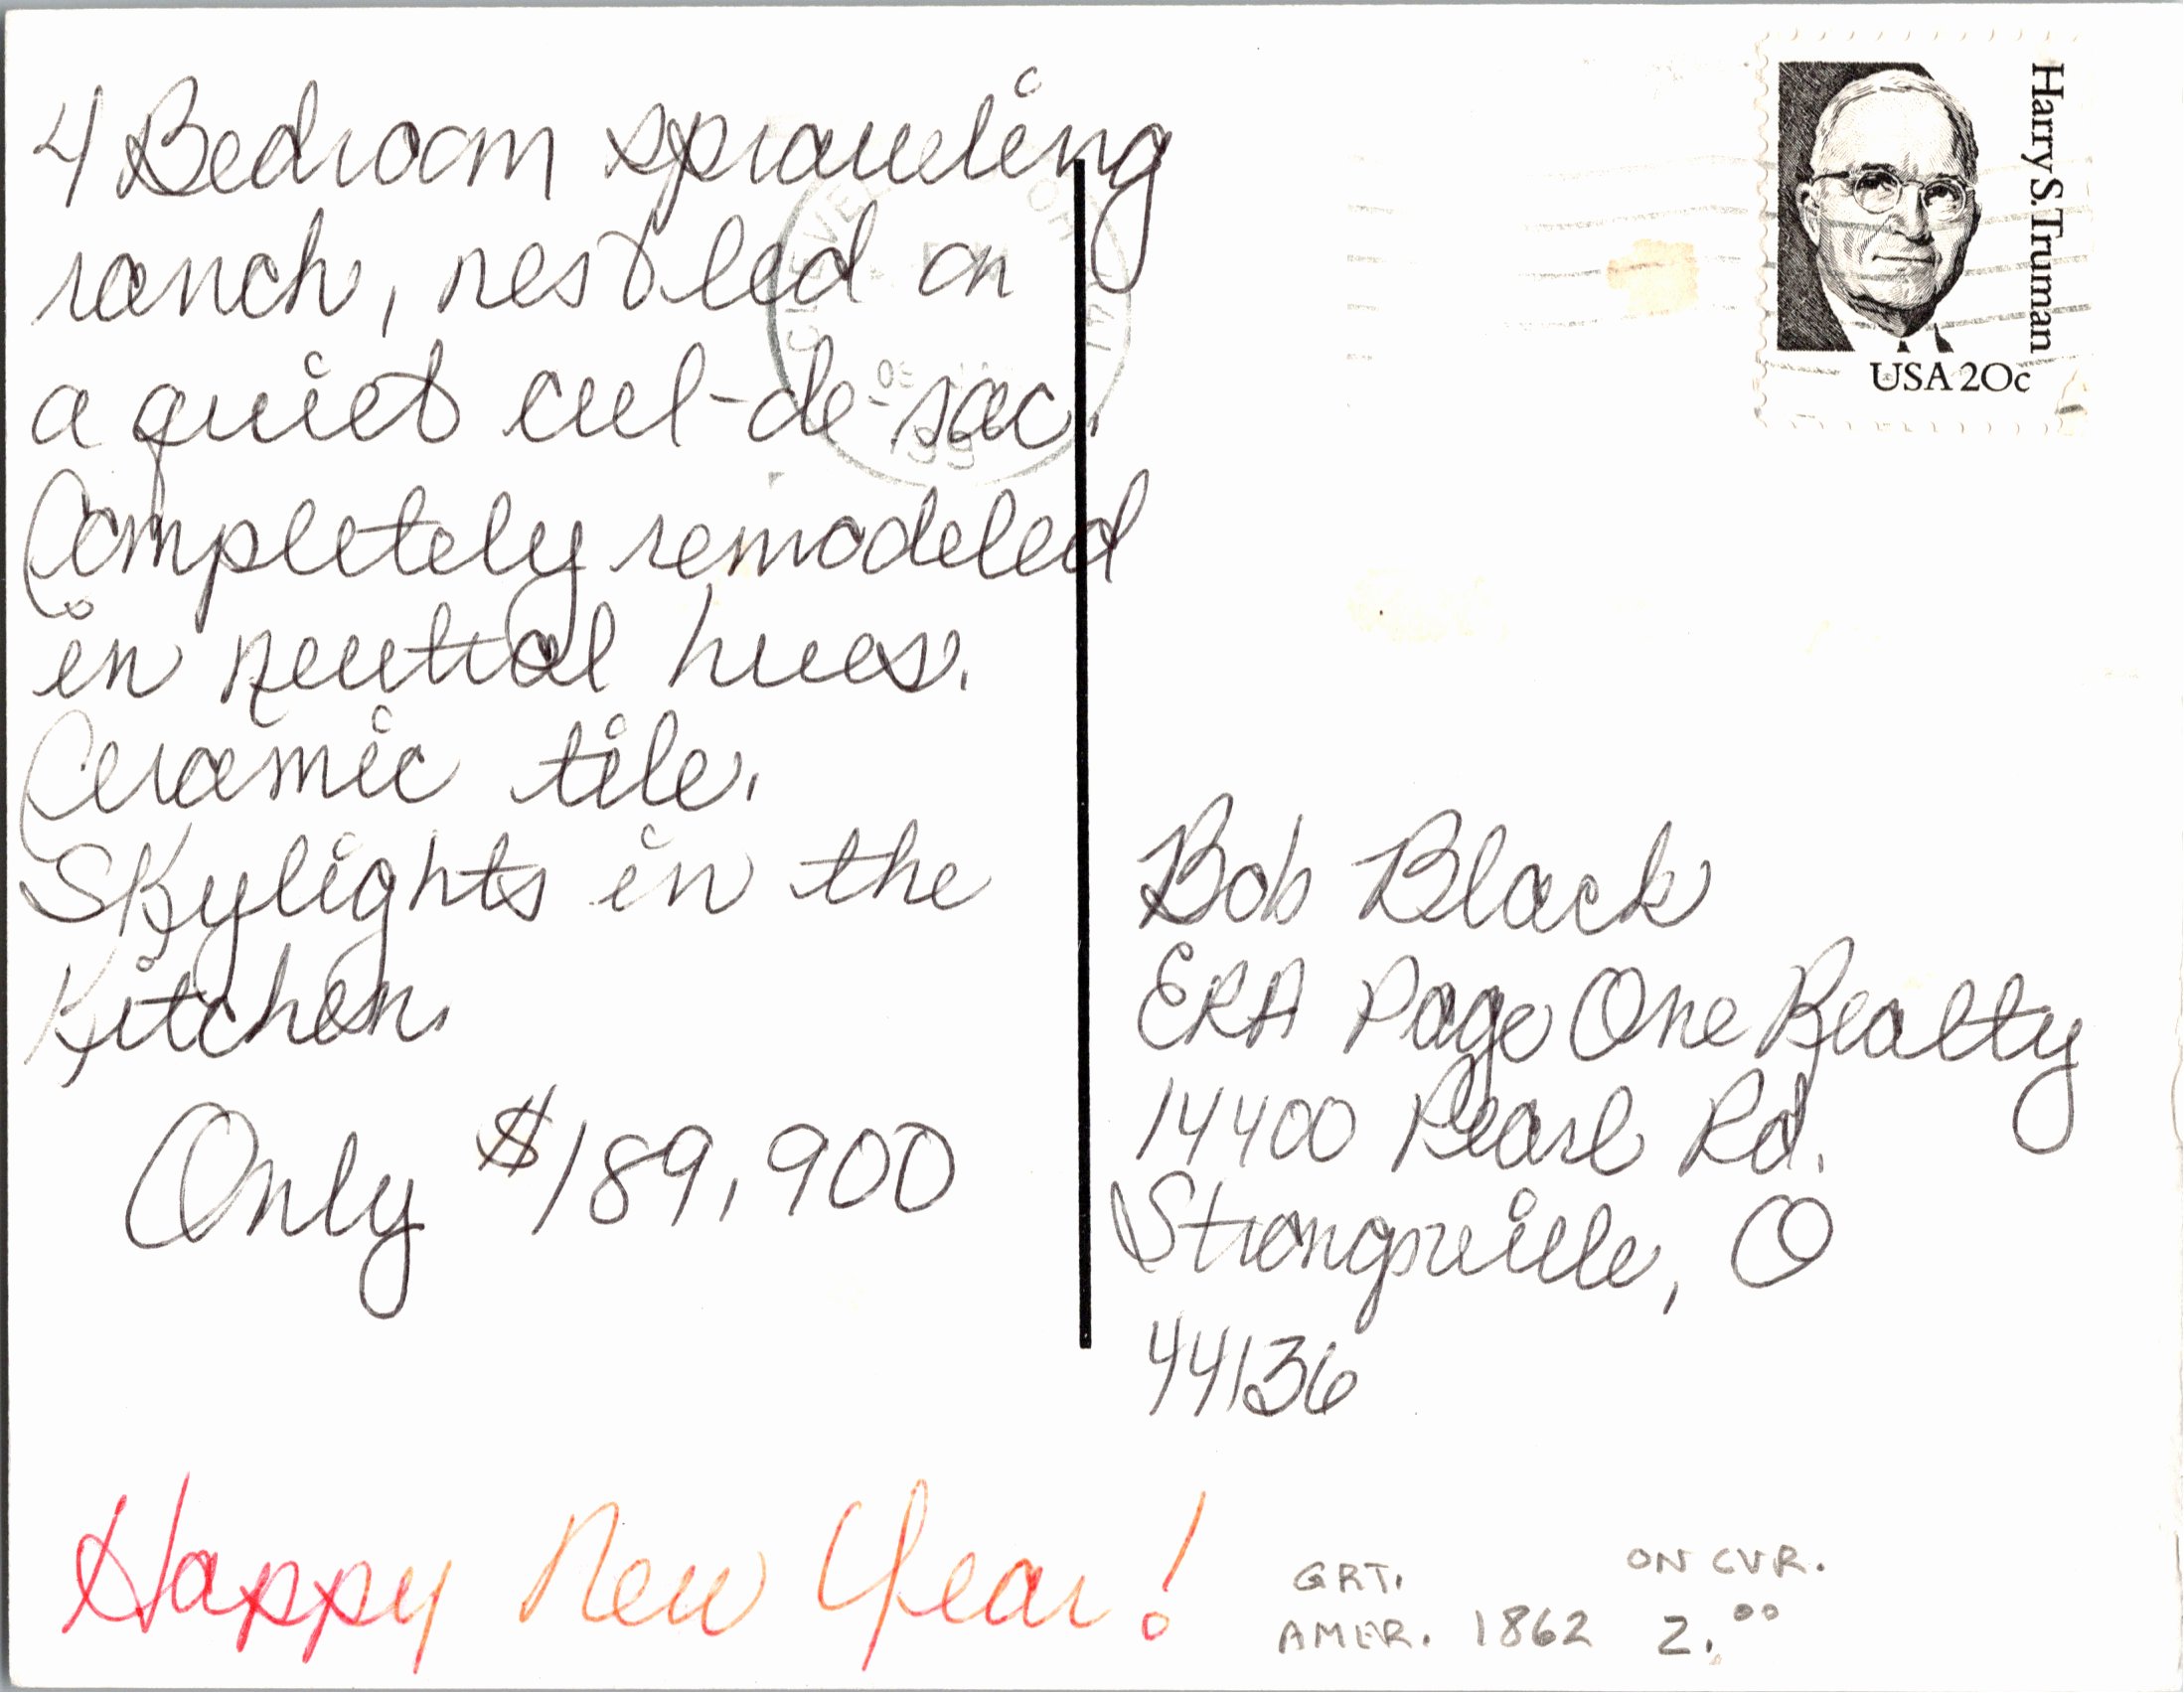 4 Bedroom sprawling
ranch, nestled on
a quiet cul-de-sac.
Completely remodeled
in neutral hues.
Ceramic tile.
Skylights in the
Kitchen.
Only $189,900
Happy New Year!
Harry S. Truman
USA 20c
Bob Black
ERA Page One Realty
14400 Pearl Rd.
Strongsville, O
44136
GRT.
AMER. 1862
ON CVR.
2.00